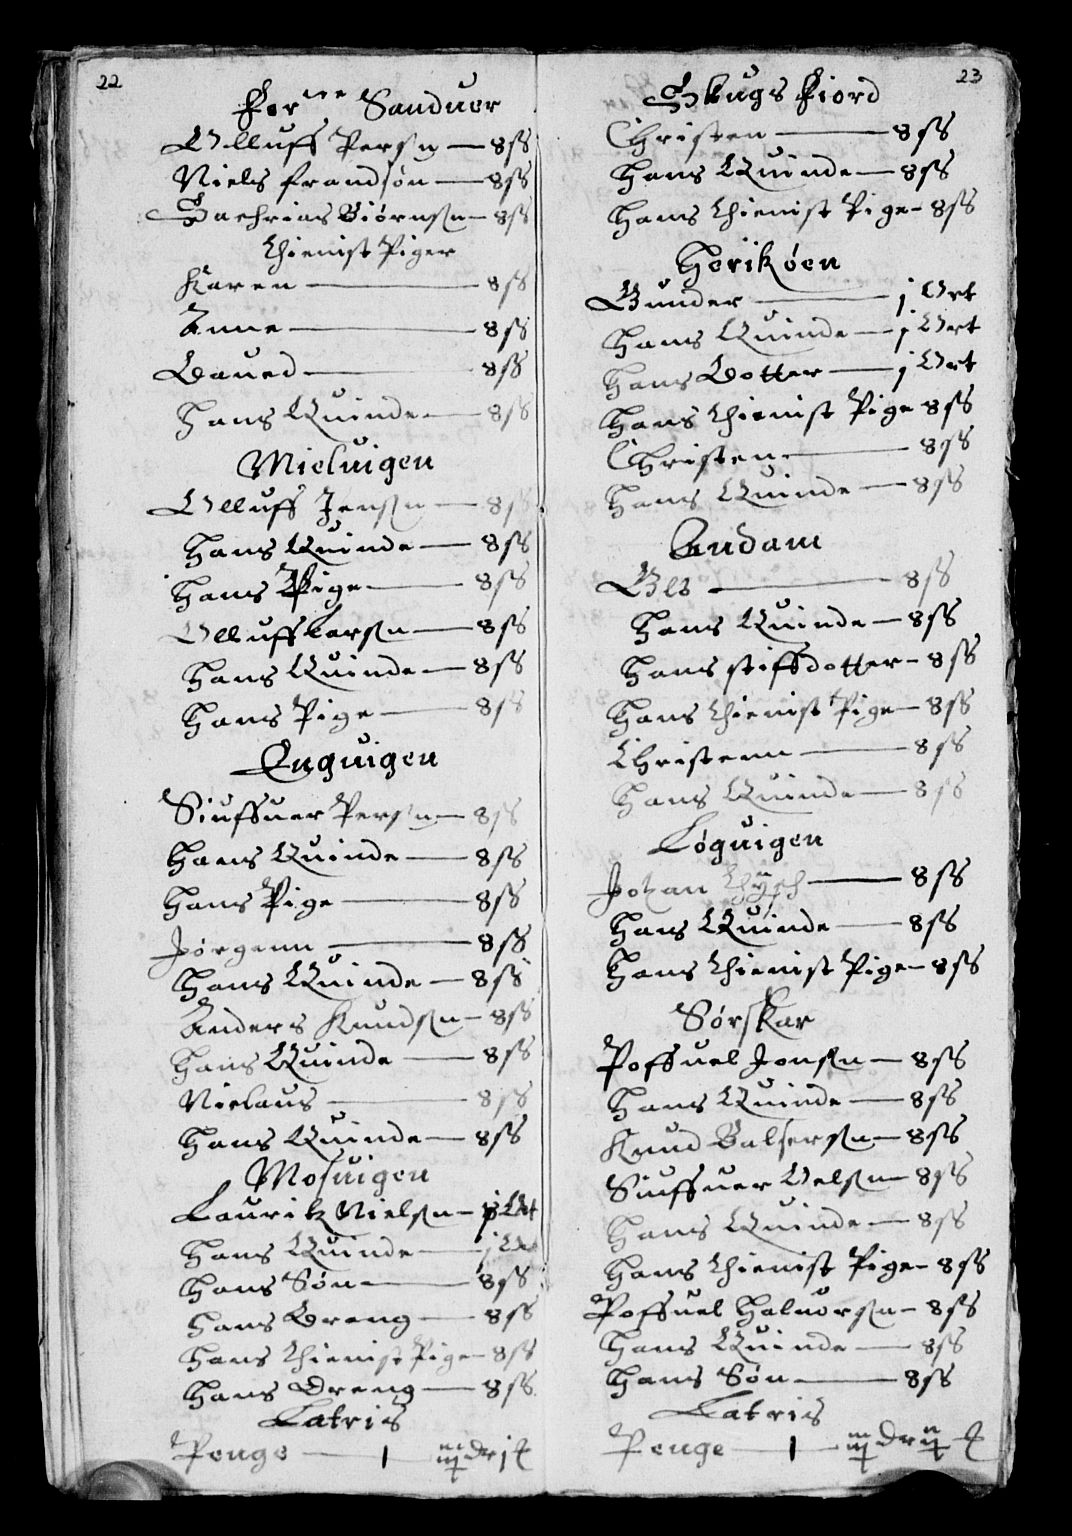 22
For^ne Sanduer
Olluff Persn — 8 ss
Niels frandsøn — 8 ss
Zachrias Biørnsn — 8 ss
thienist Piger
Karen — 8 ss
Anne — 8 ss
Daued — 8 ss
Hans Quinde — 8 ss
Mieluigen
Olluff Jensn — 8 ss
Hans Quinde — 8 ss
Hans Pige — 8 ss
Olluff Larsn — 8 ss
Hans Quinde — 8 ss
Hans Pige — 8 ss
Enguigen
Siuffuer Persn — 8 ss
Hans Quinde — 8 ss
Hans Pige — 8 ss
Jørgenn — 8 ss
Hans Quinde — 8 ss
Anders Knudsn — 8 ss
Hans Quinde — 8 ss
Nielaus — 8 ss
Hans Quinde — 8 ss
Mosuigen
Lauritz Nielsn — j Ort
Hans Quinde — j Ort
Hans Søn — 8 ss
Hans Dreng — 8 ss
Hans thienist Pige — 8 ss
Hans Dreng — 8 ss
Latris
Penge — 1
23
Skugs Fiord
Christen — 8 ss
Hans Quinde — 8 ss
Hans thienist Pige — 8 ss
Herikøen
Gunder — j Ort
Hans Quinde — j Ort
Hans Dotter — j Ort
Hans thienist Pige 8 ss
Christen — 8 ss
Hans Quinde — 8 ss
Andam
Ole — 8 ss
Hans Quinde — 8 ss
Hans stiffdotter — 8 ss
Hans thienist Pige — 8 ss
Christenn — 8 ss
Hans Quinde — 8 ss
Løguigen
Johan — 8 ss
Hans Quinde — 8 ss
Hans thienist Pige — 8 ss
Sørskar
Poffuel Jonsn — 8 ss
Hans Quinde — 8 ss
Knud Balsersn — 8 ss
Siuffuer Oelsn — 8 ss
Hans Quinde — 8 ss
Hans thienist Pige — 8 ss
Poffuel Haluorsn — 8 ss
Hans Quinde — 8 ss
Hans Søn — 8 ss
Latris
Penge — 1